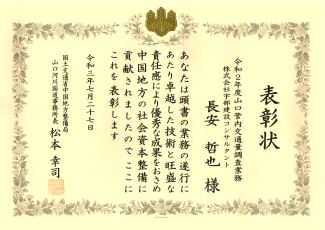 表彰状
令和2年度山口管内交通量調査業務
株式会社宇部建設コンサルタント
長安 哲也 様
あなたは頭書の業務の遂行に
あたり卓越した技術と旺盛な
責任感により優秀な成果をおさめ
中国地方の社会資本整備に
貢献されましたのでここに
これを表彰します
令和三年七月二十七日
国土交通省中国地方整備局
山口河川国道事務所長 松本 幸司